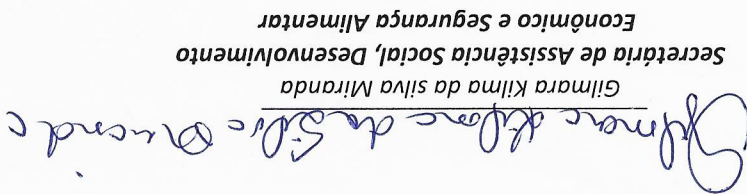 Gilmara Kilma da Silva Miranda
Gilmara Kilma da silva Miranda
Secretária de Assistência Social, Desenvolvimento
Econômico e Segurança Alimentar